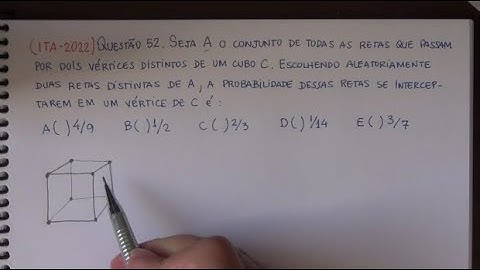 (ITA-2022) QUESTÃO 52. SEJA A O CONJUNTO DE TODAS AS RETAS QUE PASSAM
POR DOIS VÉRTICES DISTINTOS DE UM CUBO C. ESCOLHENDO ALEATORIAMENTE
DUAS RETAS DISTINTAS DE A, A PROBABILIDADE DESSAS RETAS SE INTERCEP-
TAREM EM UM VÉRTICE DE C É:
A( ) 4/9 B( ) 1/2 C( ) 2/3 D( ) 1/14 E( ) 3/7